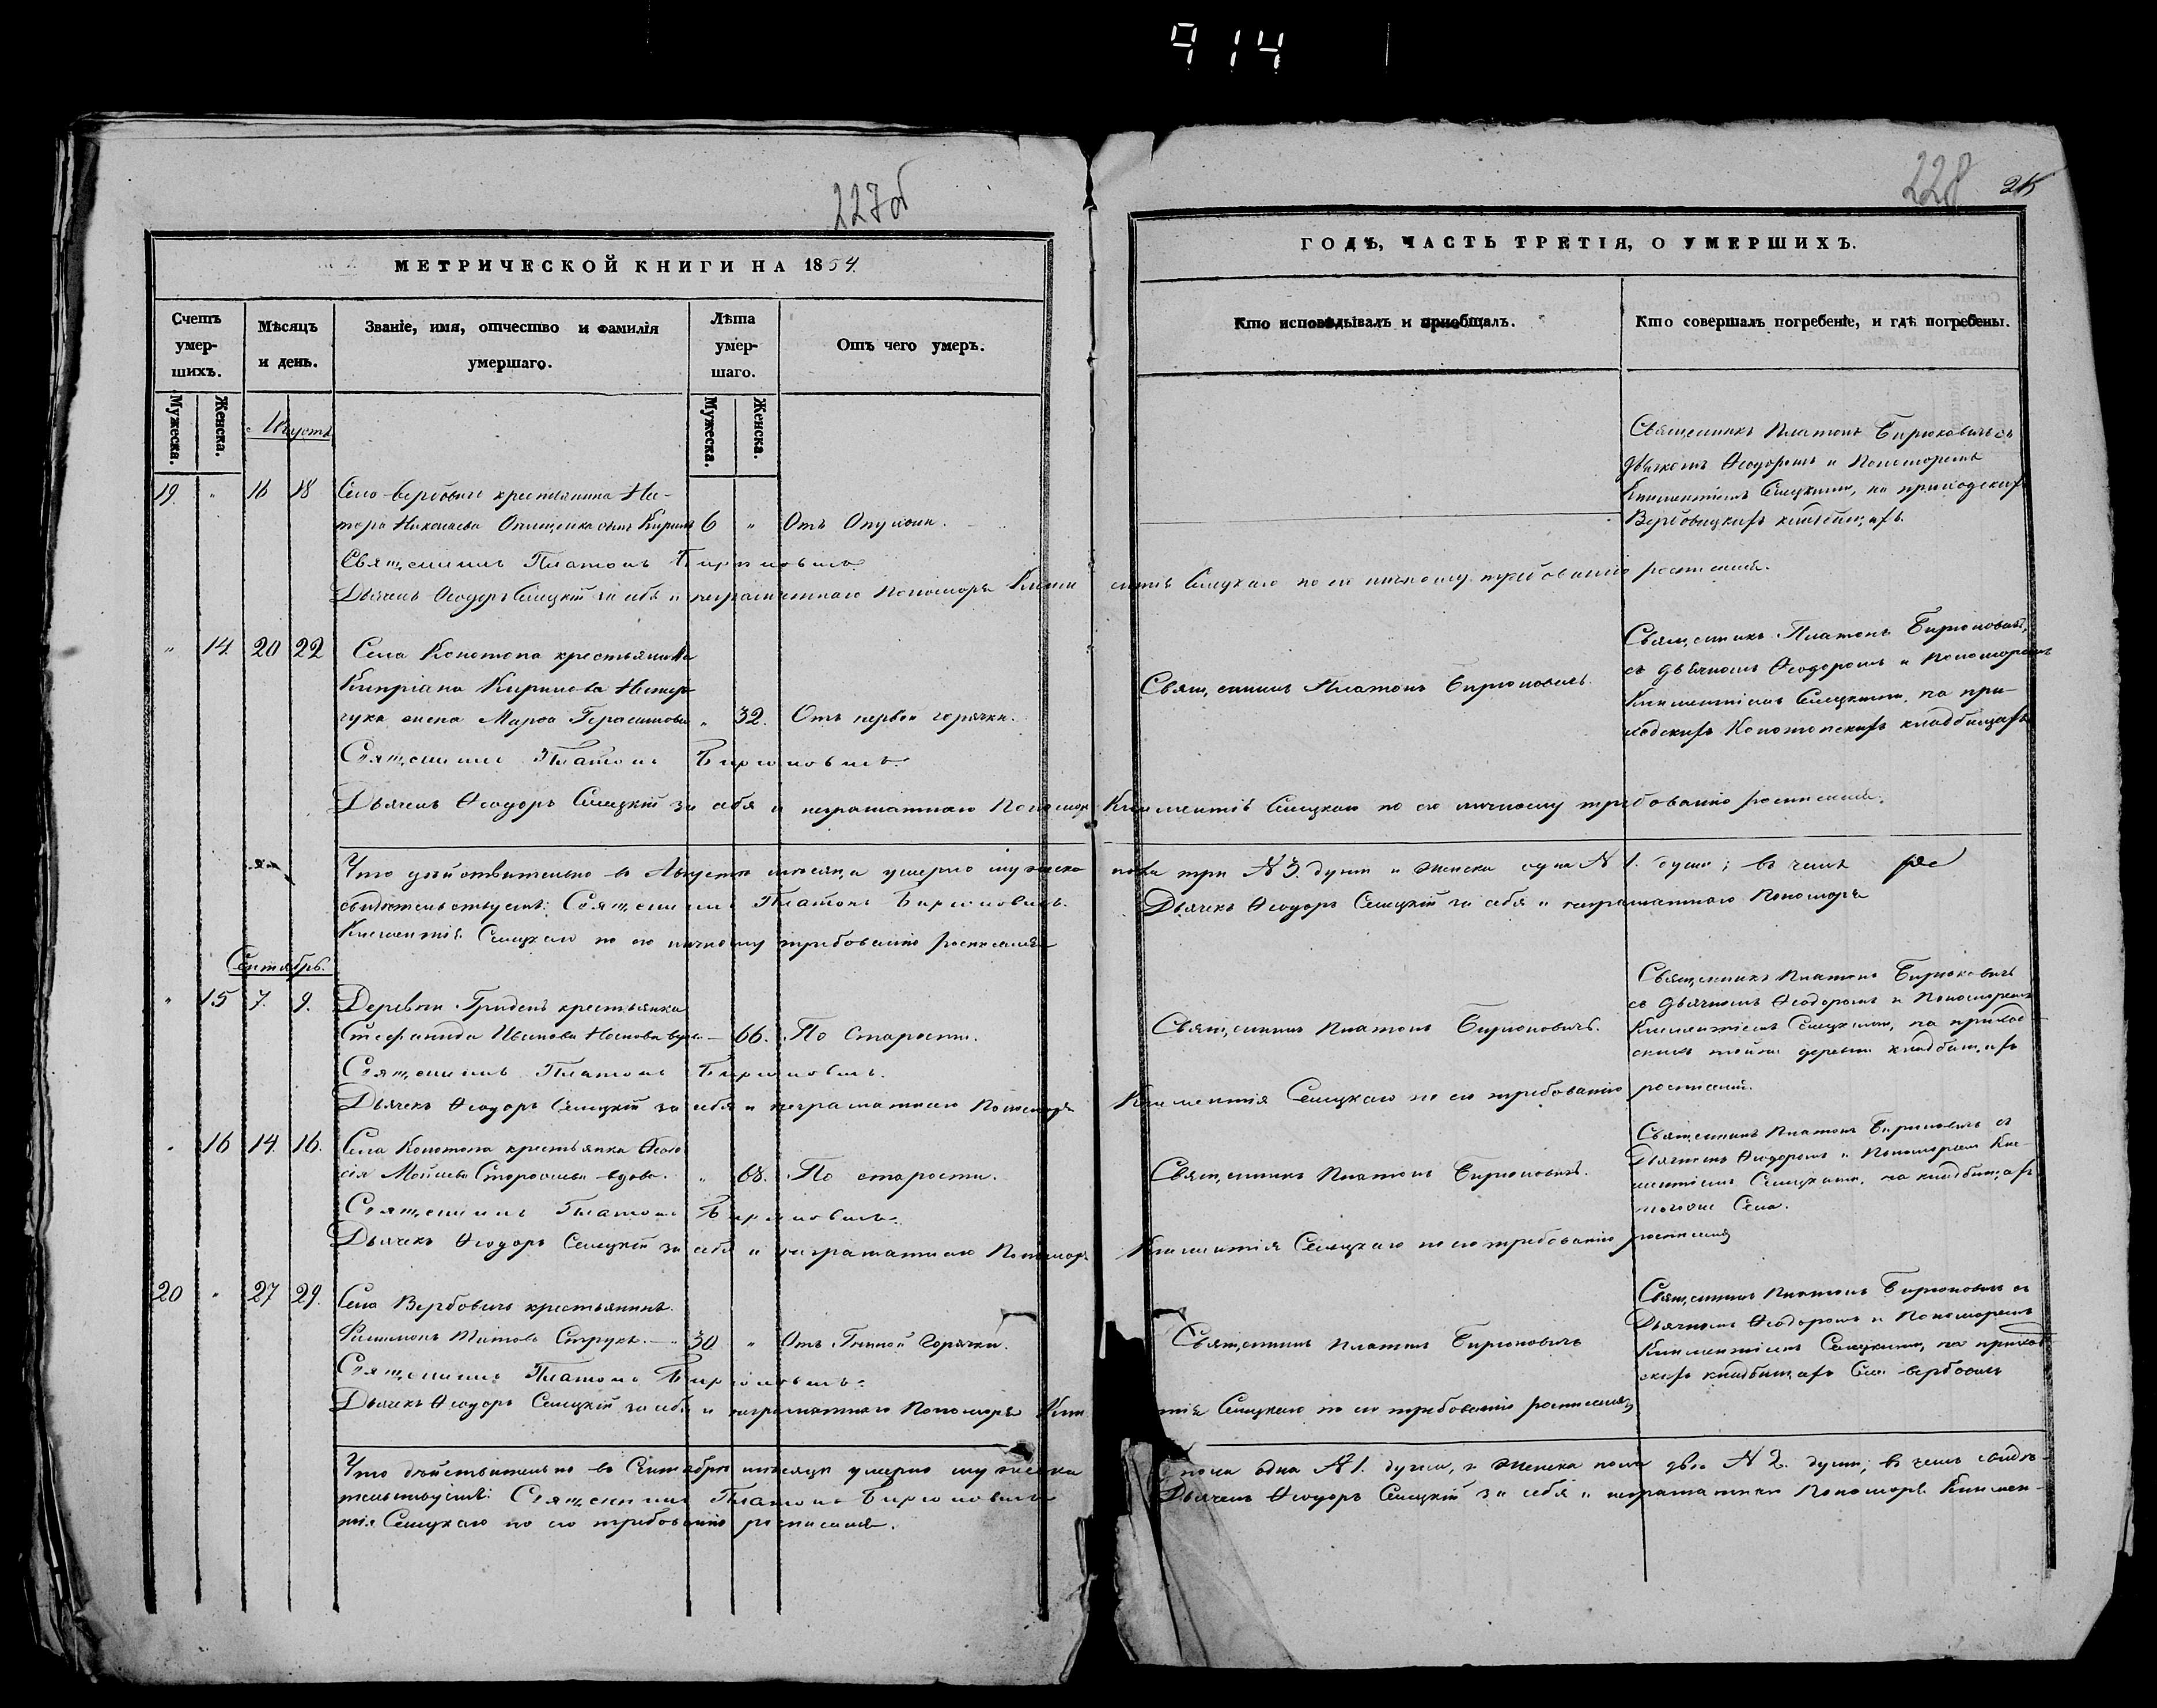 914
227об
228
МЕТРИЧЕСКОЙ КНИГИ НА 1854.
Счетъ умер-шихъ.
Мужеска.
Женска.
Мѣсяцъ и день.
Званіе, имя, отчество и фамилія умершаго.
Лѣта умер-шаго.
Мужеска.
Женска.
Отъ чего умеръ.
ГОДЪ, ЧАСТЬ ТРЕТІЯ, О УМЕРШИХЪ.
Кто исповѣдывалъ и приобщалъ.
Кто совершалъ погребеніе, и гдѣ погребены.
Августъ
19. " 16 18 Села Вербовичъ крестьянина
Николаева сынъ Кирилъ 6 " Отъ Опухоли.
Священникъ Платонъ Бирюковичъ съ
дьячкомъ Ѳеодоромъ и Пономаремъ
Климентіемъ Сѣлицкимъ, на приходскихъ
Вербовицкихъ кладбищахъ.
Священникъ Платонъ Бирюковичъ
Дьячекъ Ѳеодоръ Сѣлицкій за себя и неграматнаго Пономаря Климентія Сѣлицкаго по его личному требованію росписался.
" 14. 20 22 Села Конотопа крестьянина
Кипріана Кирилова
жена Марѳа Герасимова " 32. Отъ нервной горячки.
Священникъ Платонъ Бирюковичъ.
Священникъ Платонъ Бирюковичъ,
съ дьячкомъ Ѳеодоромъ и Пономаремъ
Климентіемъ Сѣлицкимъ, на при-
ходскихъ Конотопскихъ кладбищахъ
Священникъ Платонъ Бирюковичъ.
Дьячекъ Ѳеодоръ Сѣлицкій за себя и неграматнаго Пономаря Климентія Сѣлицкаго по его личному требованію росписался.
Что дѣйствительно въ Августѣ мѣсяцѣ умерло мужеска пола три № 3. души и женска одна № 1. душа; въ чемъ
свидѣтельствуемъ: Священникъ Платонъ Бирюковичъ. Дьячекъ Ѳеодоръ Сѣлицкій за себя и неграматнаго Пономаря
Климентія Сѣлицкаго по его личному требованію росписался
Сентябрь.
" 15 7. 9. Деревни Гридень крестьянка
Стефанида Иванова вдова — 66. По Старости.
Священникъ Платонъ Бирюковичъ.
Священникъ Платонъ Бирюковичъ
съ дьячкомъ Ѳеодоромъ и Пономаремъ
Климентіемъ Сѣлицкимъ, на приход-
скихъ деревни кладбищахъ
Священникъ Платонъ Бирюковичъ.
Дьячекъ Ѳеодоръ Сѣлицкій за себя и неграматнаго Пономаря Климентія Сѣлицкаго по его требованію росписался.
" 16 14. 16. Села Конотопа крестьянка Ѳеодо-
сія вдова. " 68. По старости.
Священникъ Платонъ Бирюковичъ.
Священникъ Платонъ Бирюковичъ съ
Дьячкомъ Ѳеодоромъ и Пономаремъ Кли-
ментіемъ Сѣлицкимъ, на кладбищахъ
тогоже Села.
Священникъ Платонъ Бирюковичъ.
Дьячекъ Ѳеодоръ Сѣлицкій за себя и неграматнаго Пономаря Климентія Сѣлицкаго по его требованію росписался
20 " 27 29. Села Вербовичъ крестьянинъ
Филимонъ Титовъ Струкъ. — 30 " Отъ Горячки.
Священникъ Платонъ Бирюковичъ
Священникъ Платонъ Бирюковичъ съ
Дьячкомъ Ѳеодоромъ и Пономаремъ
Климентіемъ Сѣлицкимъ, на приход-
скихъ кладбищахъ Села Вербовичъ
Священникъ Платонъ Бирюковичъ.
Дьячекъ Ѳеодоръ Сѣлицкій за себя и неграматнаго Пономаря Кли тія Сѣлицкаго по его требованію росписался
Что дѣйствительно въ Сентябрѣ мѣсяцѣ умерло мужеска пола одна № 1. душа, и женска пола двѣ № 2. души; въ чемъ свидѣ-
тельствуемъ: Священникъ Платонъ Бирюковичъ Дьячекъ Ѳеодоръ Сѣлицкій за себя и неграматнаго Пономаря Климен-
тія Сѣлицкаго по его требованію росписался.